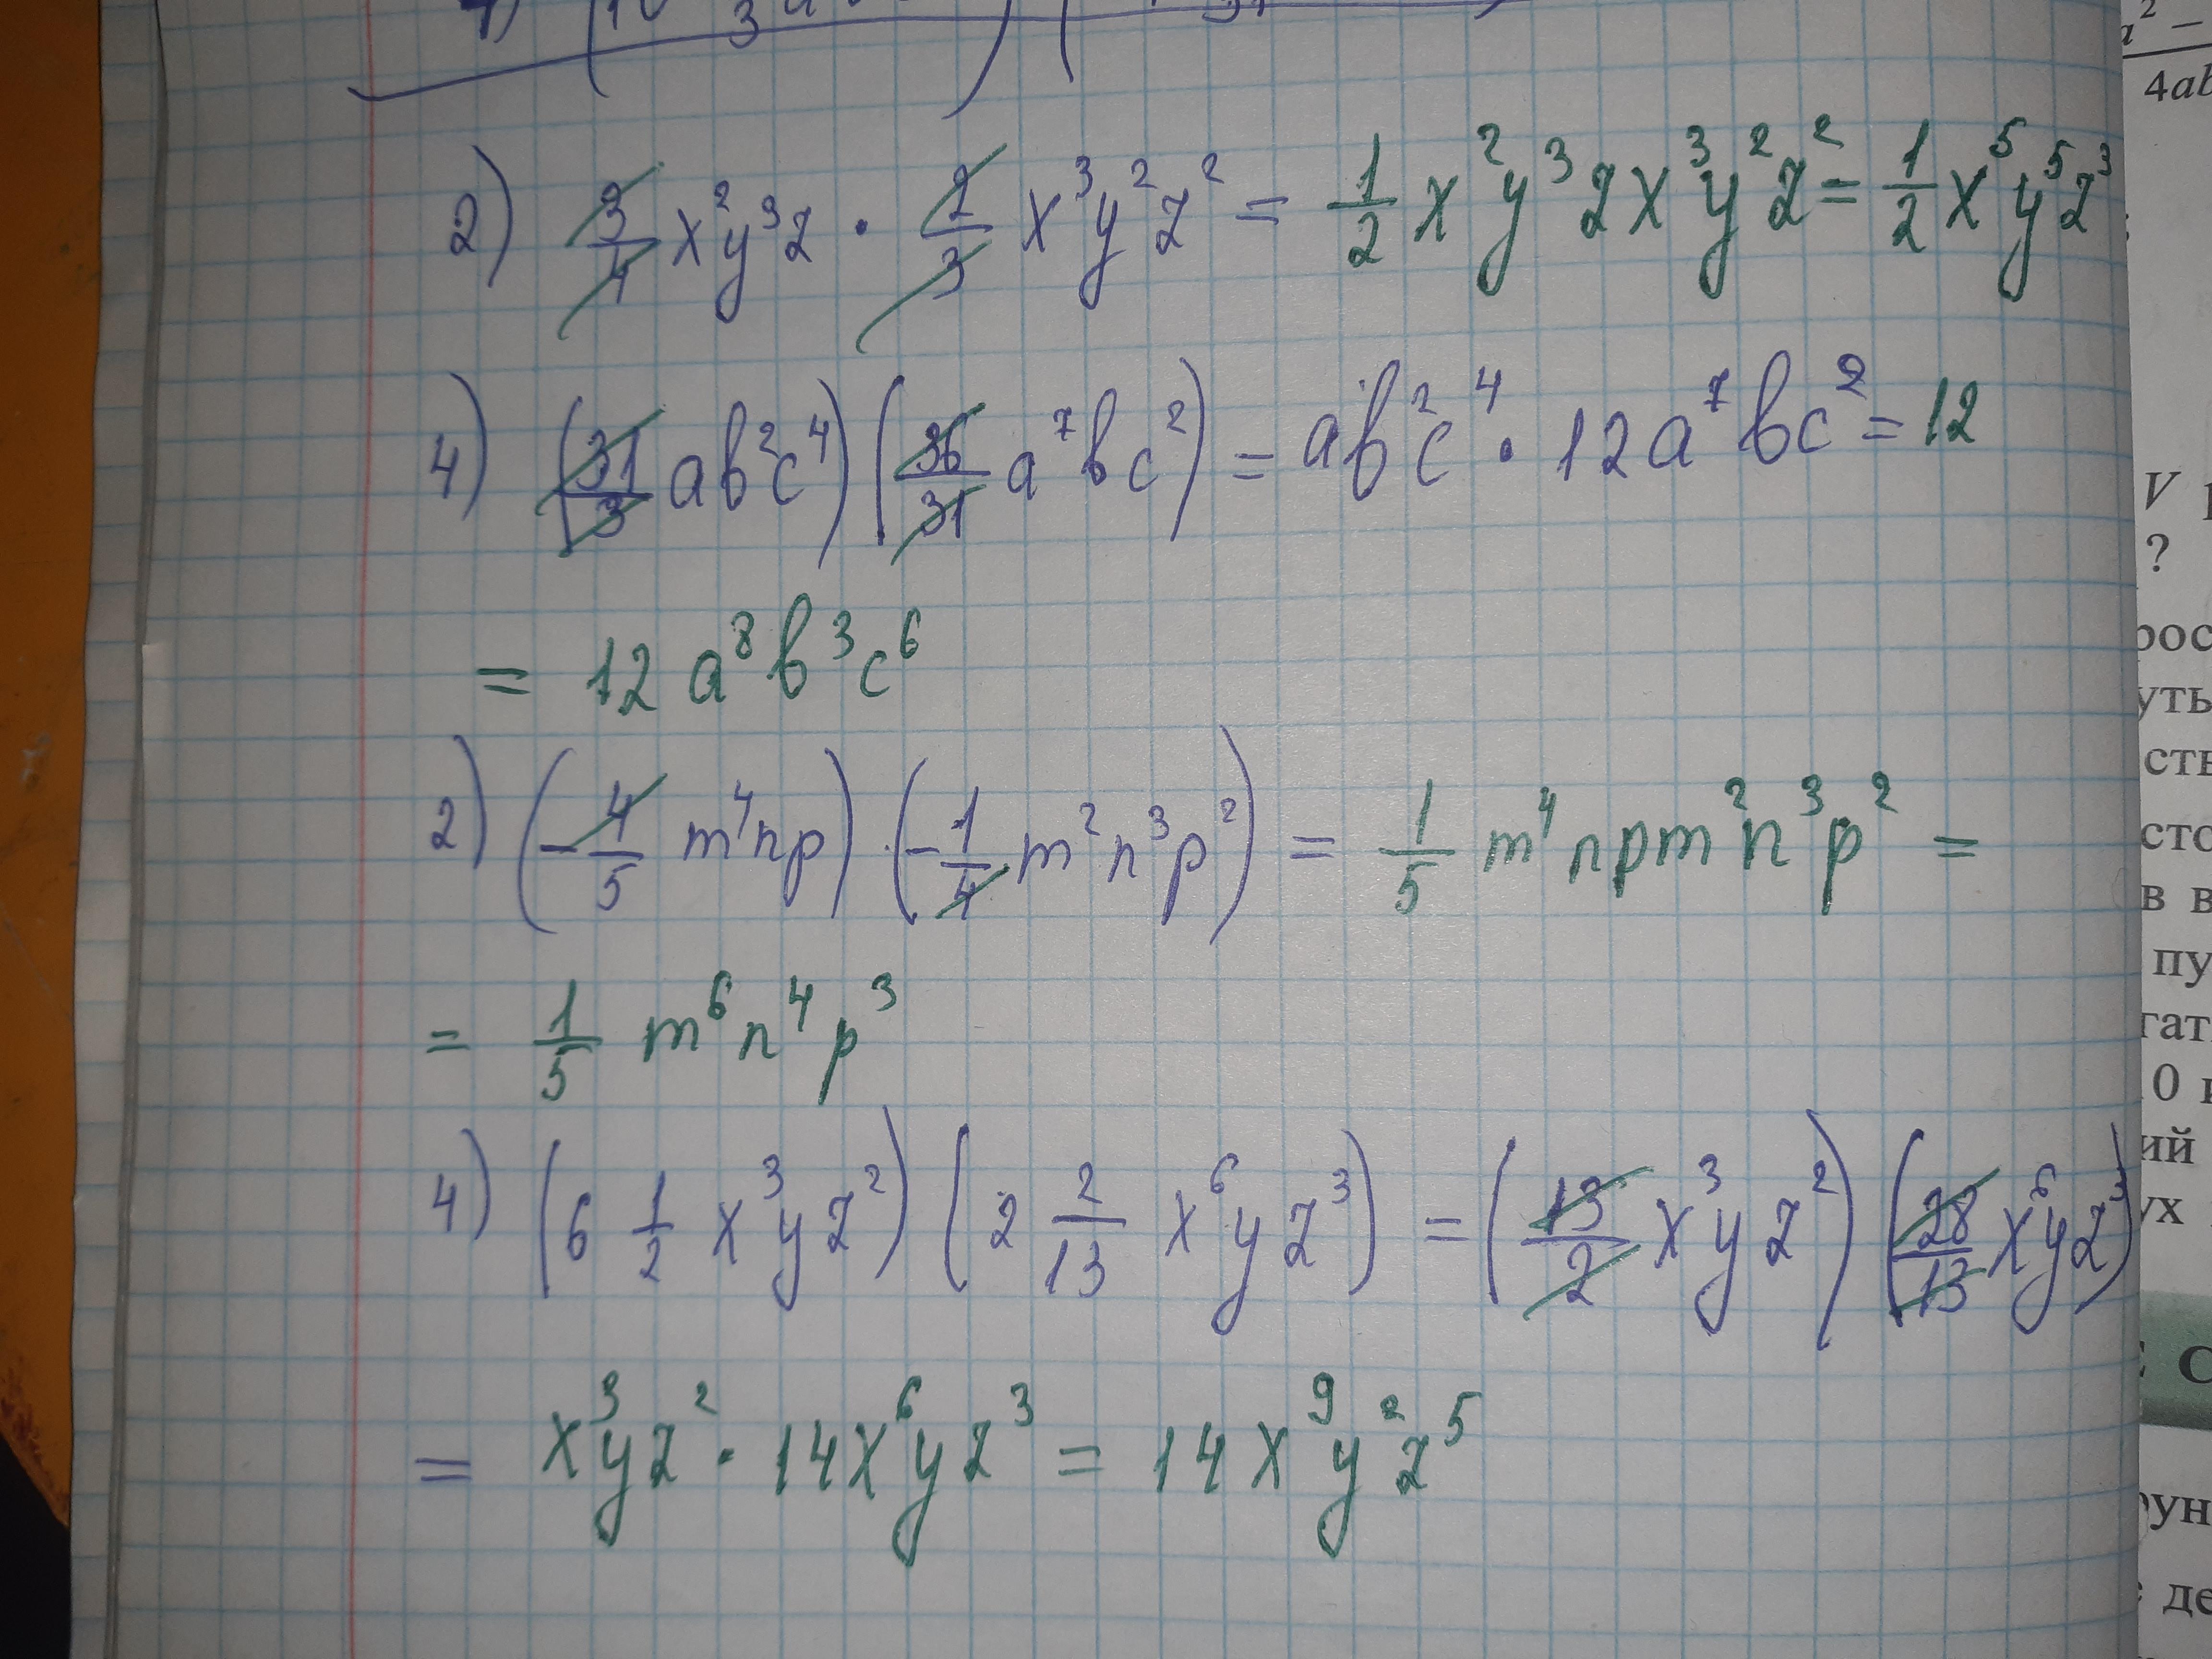 2) 3/4 x²y³z · 2/3 x³y²z² = 1/2 x²y³zx³y²z² = 1/2 x⁵y⁵z³
4) (31/3 ab²c⁴) (36/31 a⁷bc²) = ab²c⁴ · 12a⁷bc² = 12
= 12a⁸b³c⁶
2) (-4/5 m⁴np) · (-1/4 m²n³p²) = 1/5 m⁴npm²n³p² =
= 1/5 m⁶n⁴p³
4) (6 1/2 x³yz²) (2 2/13 x⁶yz³) = (13/2 x³yz²) (28/13 x⁶yz³)
= x³yz² · 14x⁶yz³ = 14x⁹y²z⁵
4ab
V
?